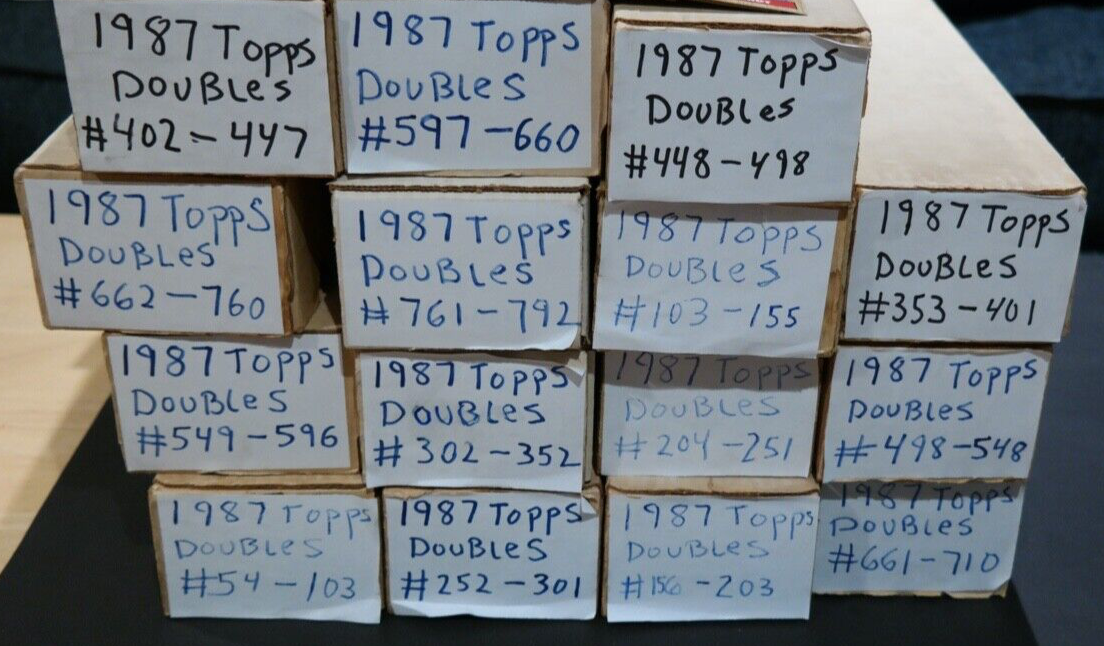 1987 Topps
Doubles
#402-447
1987 Topps
Doubles
#597-660
1987 Topps
Doubles
#448-498
1987 Topps
Doubles
#662-760
1987 Topps
Doubles
#761-792
1987 Topps
Doubles
#103-155
1987 Topps
Doubles
#353-401
1987 Topps
Doubles
#549-596
1987 Topps
Doubles
#302-352
1987 Topps
Doubles
#204-251
1987 Topps
Doubles
#498-548
1987 Topps
Doubles
#54-103
1987 Topps
Doubles
#252-301
1987 Topps
Doubles
#156-203
1987 Topps
Doubles
#661-710